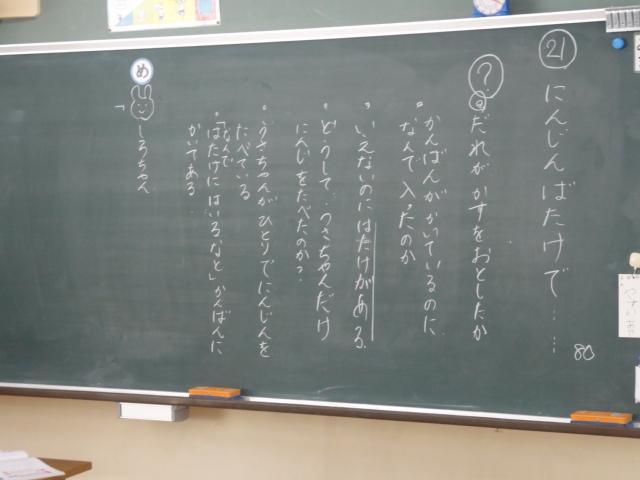 21 にんじんばたけで……
80
？
@だれがかすをおとしたか
かんばんがかいているのに
なんで入ったのか
いえないのにはたけがある
どうして、うさちゃんだけ
にんじをたべたのか？
うさちゃんがひとりでにんじんを
たべている
なんで
「はたけにはいるなと」かんばんに
かいてある
め
「しろちゃん